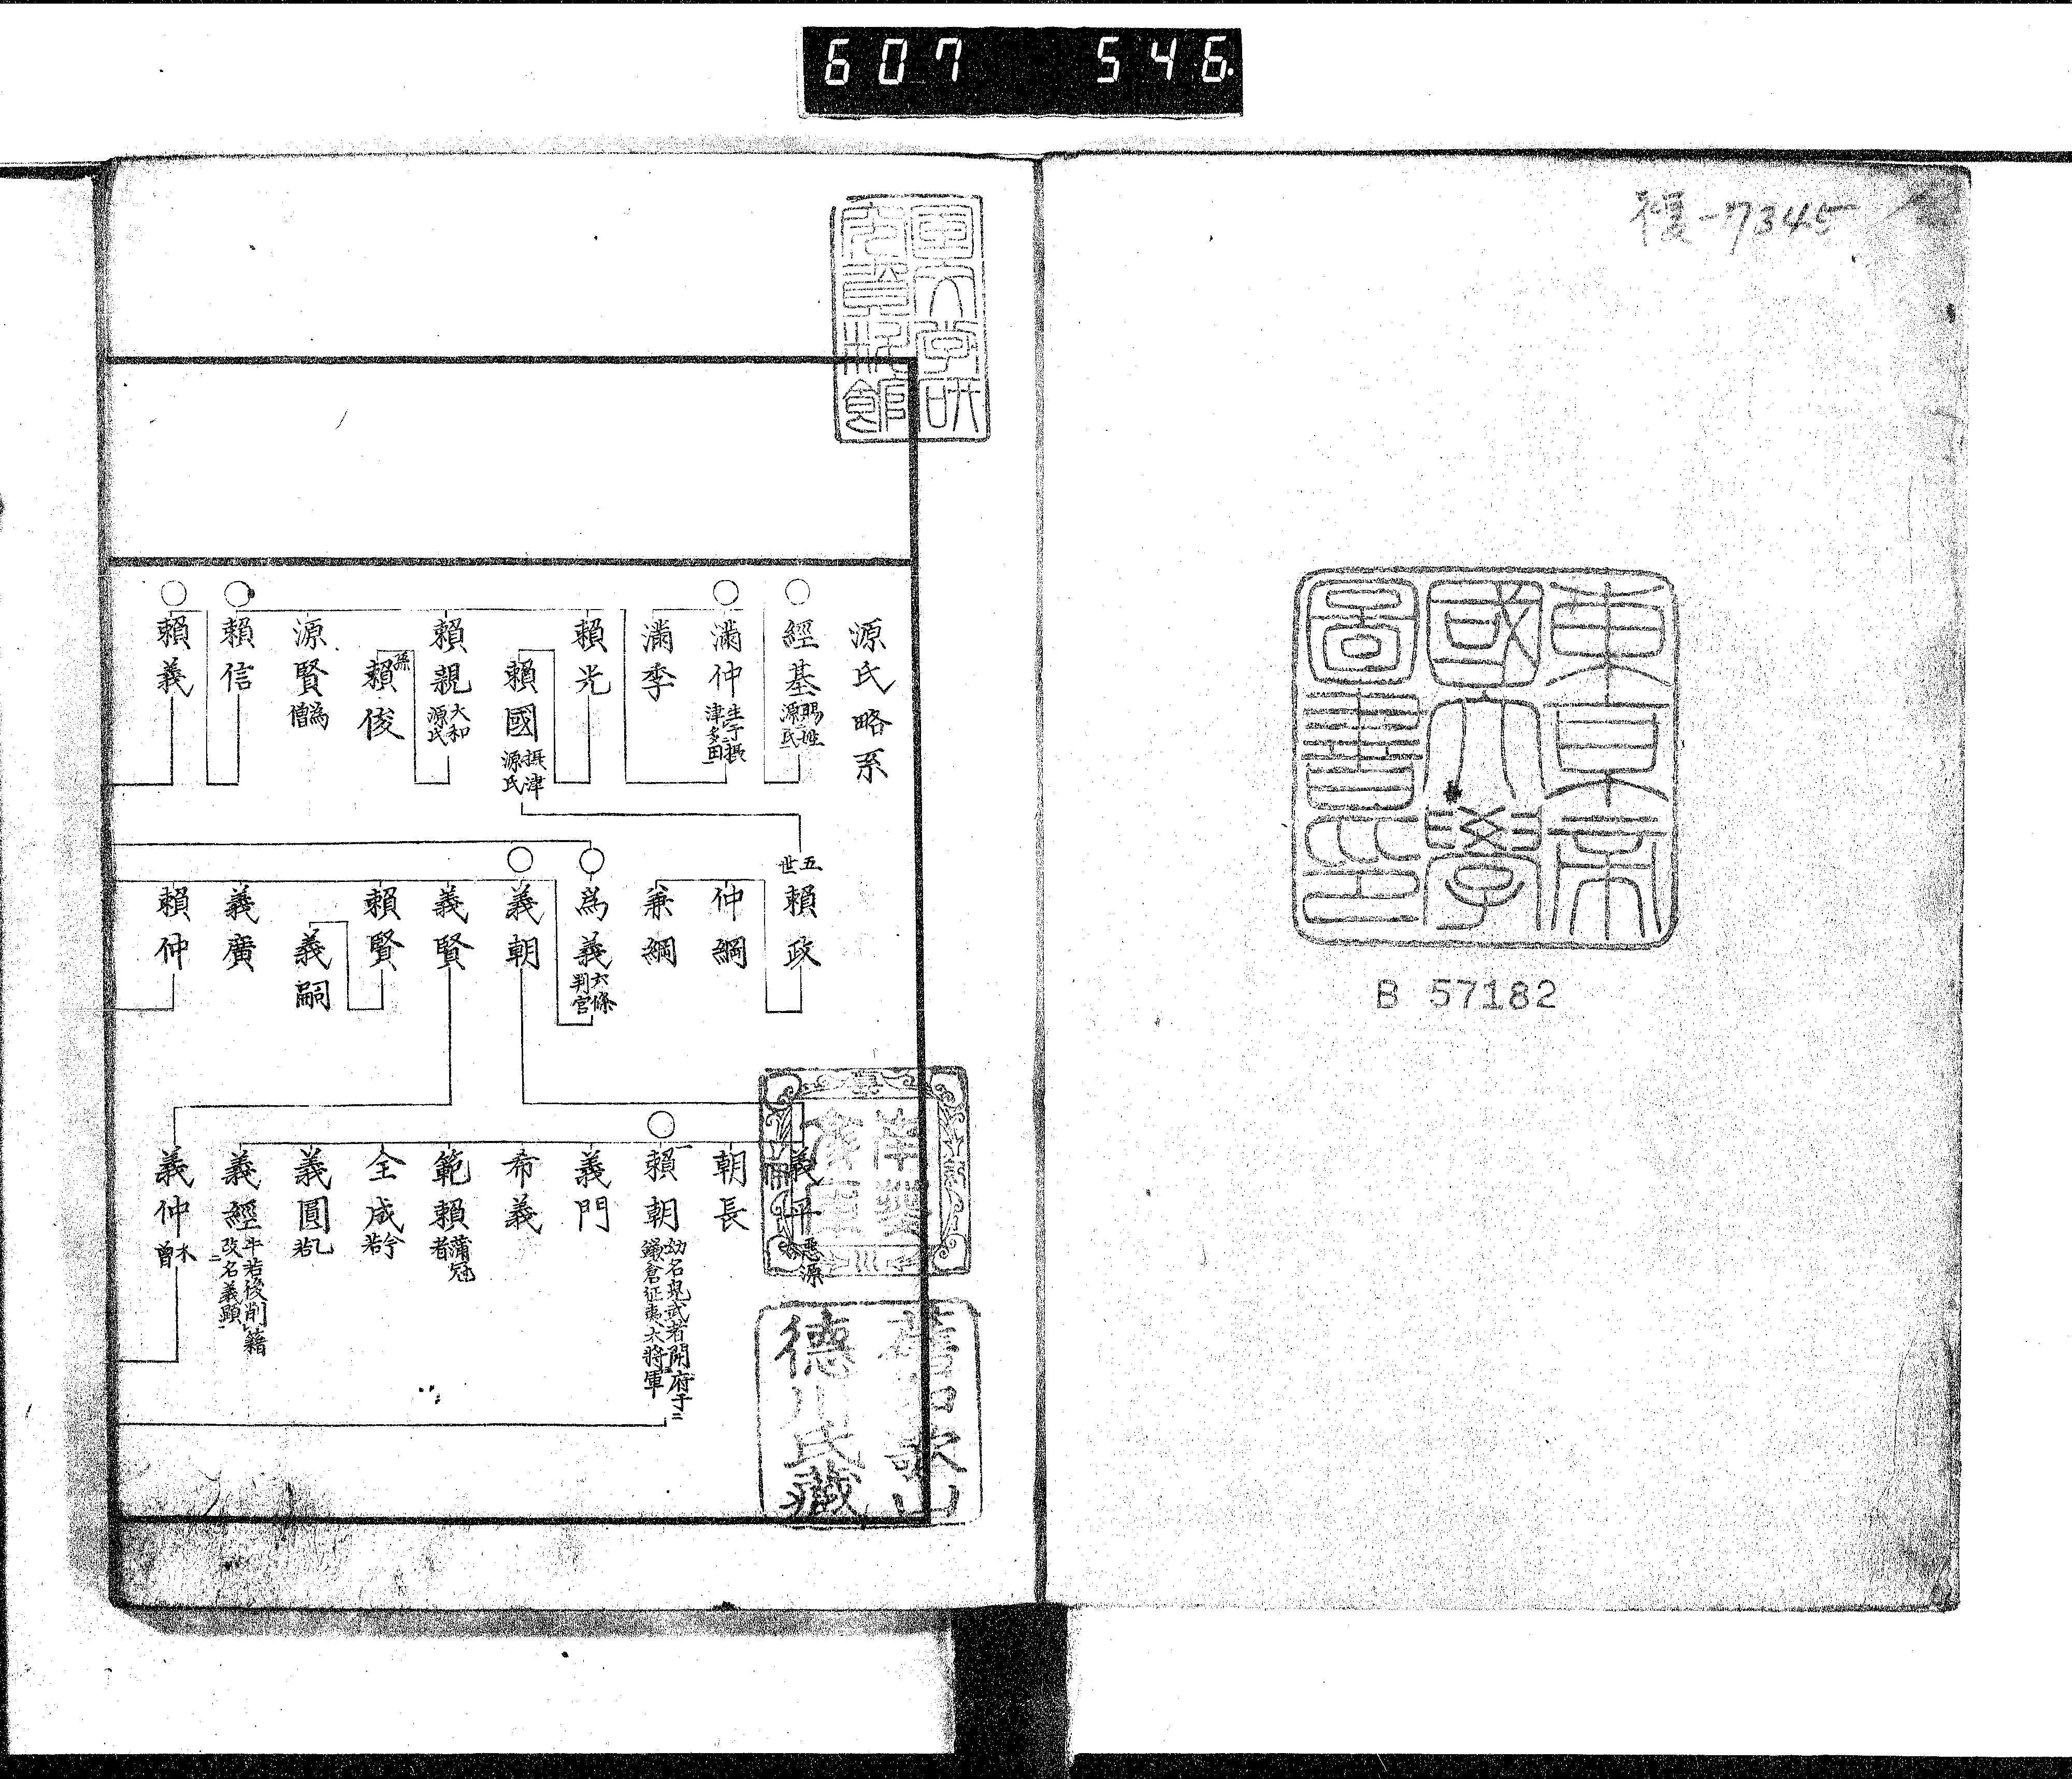 607 546
複-7345
東京帝
國大學
圖書印
B 57182
國文學研
究資料館
源氏略系
○經基 賜姓源氏
○滿仲 生于攝津多田
滿季
賴光
賴國 摂津源氏
賴親 大和源氏
孫 賴俊
源賢 爲僧
○賴信
○賴義
五世 賴政
仲綱
兼綱
○爲義 六條判官
○義朝
義賢
賴賢
義嗣
義廣
賴仲
義平 惡源
朝長
○賴朝 幼名鬼武者開府于鎌倉征夷大將軍
義門
希義
範賴 蒲冠者
全成 今若
義圓 乙若
義經 牛若後削籍改名義顯
義仲 木曾
南葵
文庫
舊和歌山
德川氏藏